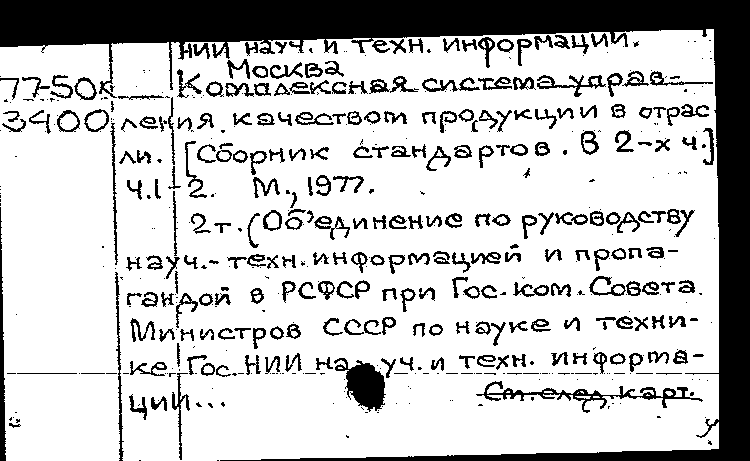 НИИ науч. и техн. информации.
Москва
77-50к Комплексная система управ-
3400 ления качеством продукции в отрас
ли. [Сборник стандартов. В 2-х ч.]
Ч.1-2. М., 1977.
2т. (Объединение по руководству
науч.-техн. информацией и пропа-
гандой в РСФСР при Гос. ком. Совета
Министров СССР по науке и техни-
ке. Гос. НИИ науч. и техн. информа-
ции...
См. след. карт.